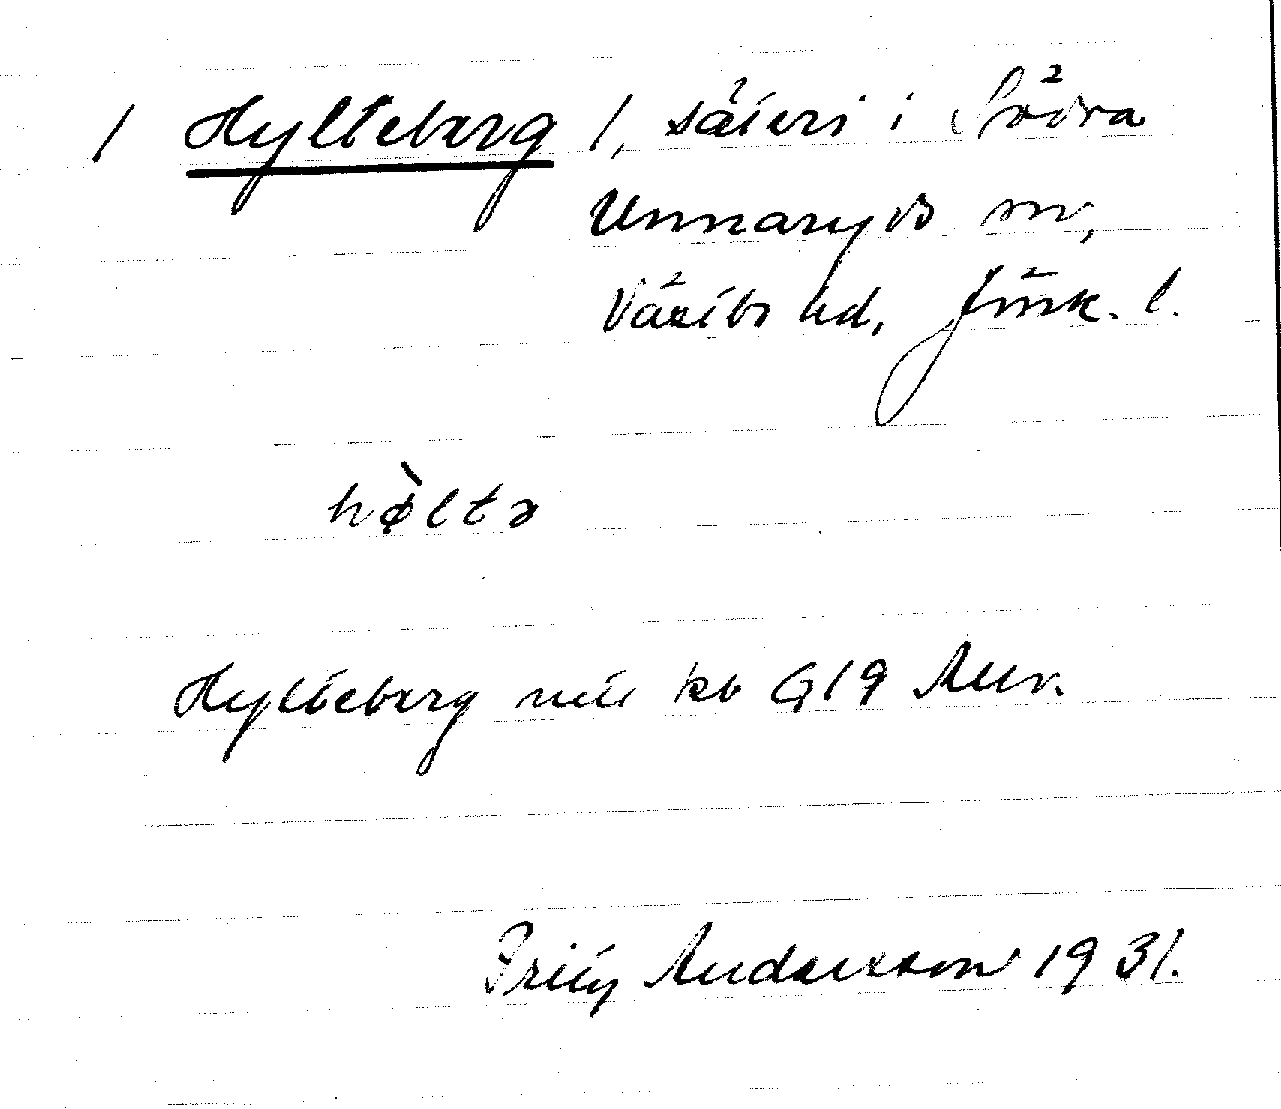 / Hylteberg /, säteri i Södra
Unnaryds sn,
Västbo hd, Jönk. l.
hø̀ltə
Hylteberg kb G19 Allm.
Fritz Andersson 1931.